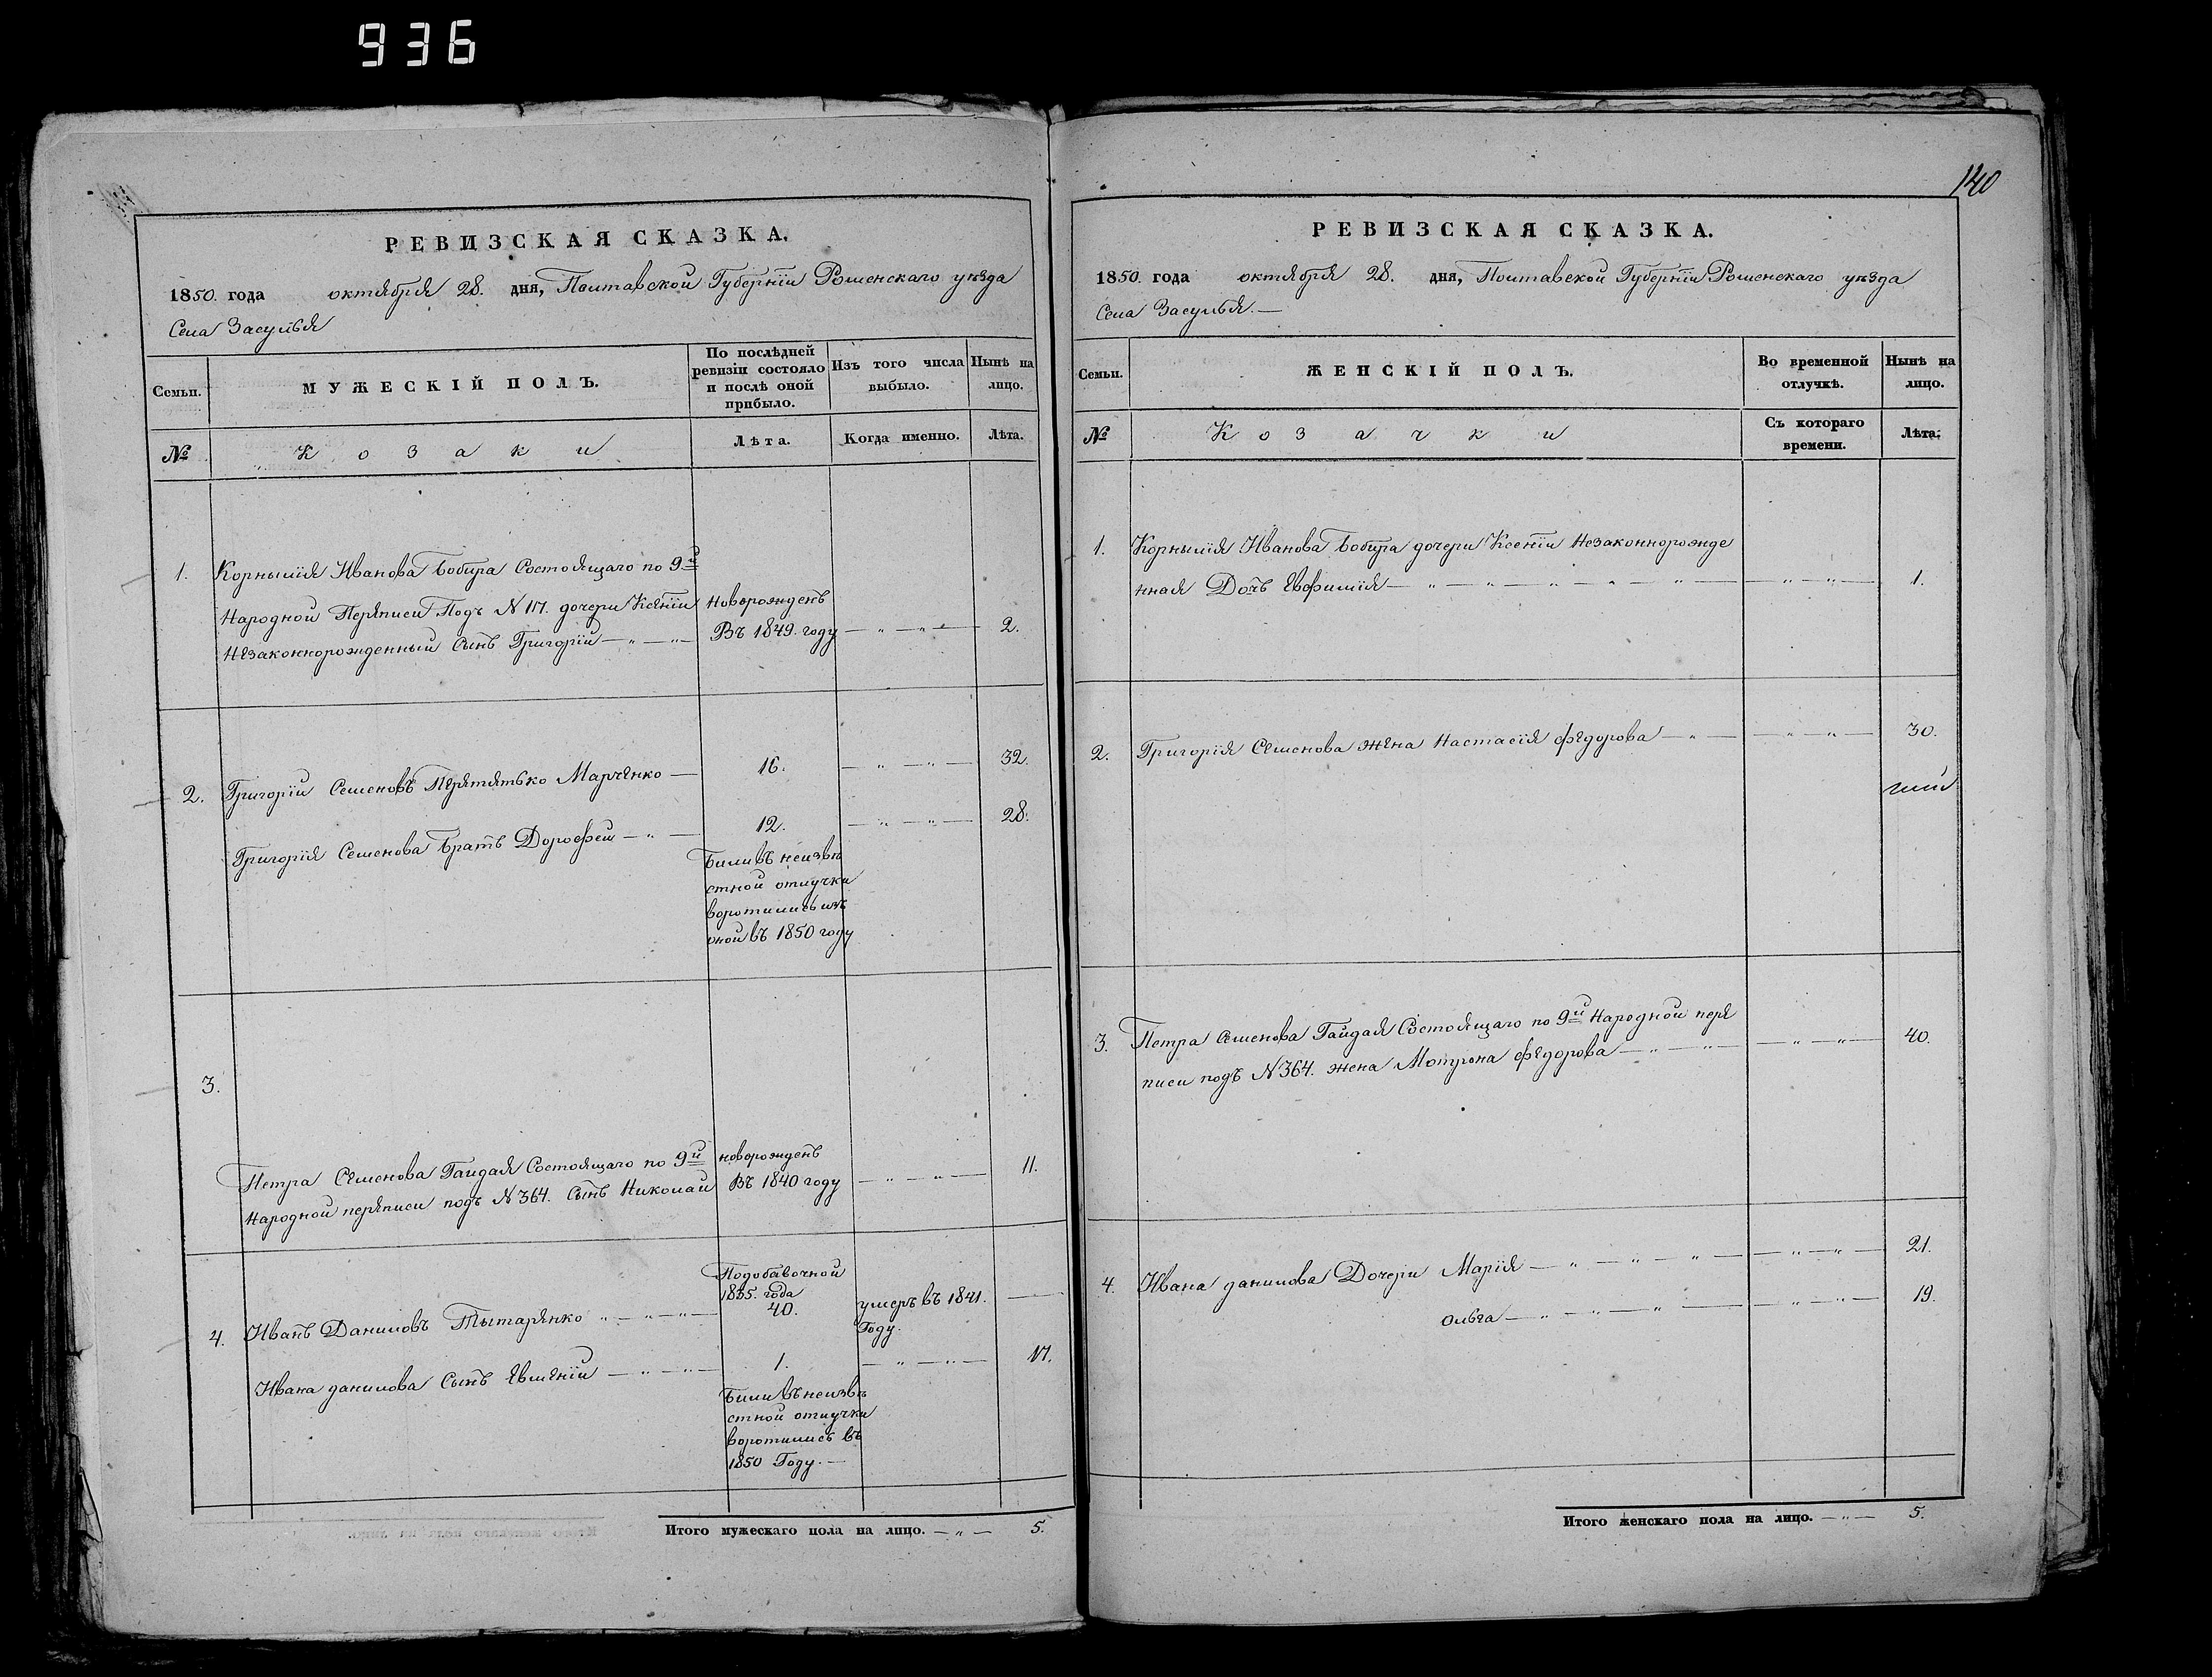 936
140
РЕВИЗСКАЯ СКАЗКА.
1850. года октября 28. дня, Полтавской Губерніи Роменскаго уѣзда
Села Засулья
Семьи.
МУЖЕСКІЙ ПОЛЪ.
По послѣдней ревизіи состояло и послѣ оной прибыло.
Изъ того числа выбыло.
Нынѣ на лицо.
№
Козаки
Лѣта.
Когда именно.
Лѣта.
1. Корнылія Иванова Бобыра Состоящаго по 9й
Народной Переписи Подъ N 117. дочери Ксеніи Новорожденъ
Незаконнорожденный Сынъ Григорій — „ — „ — Въ 1849. году — „ — „ — 2.
2. Григорій Семеновъ Перятятько Марченко — 16. — „ — „ — 32.
Григорія Семенова Братъ Дорофей — „ — 12. — „ — „ — 28.
Били въ неизвѣ
стной отлучки
воротились изъ
оной въ 1850 году
3.
Петра Семенова Гайдая Состоящаго по 9й новорожденъ
Народной переписи подъ N 364. Сынъ Николай Въ 1840 году — „ — „ — 11.
Подобавочной
1835. года
4. Иванъ Даниловъ Тытаренко „ — „ — „ — 40. умеръ въ 1841. —
Году.
Ивана данилова Сынъ Евгеній — „ — „ — 1. — „ — „ — 17.
Били въ неизвѣ
стной отлучки
воротились въ
1850 Году. —
Итого мужескаго пола на лицо. — „ — 5.
РЕВИЗСКАЯ СКАЗКА.
1850. года октября 28. дня, Полтавской Губерніи Роменскаго уѣзда
Села Засулья. —
Семьи.
ЖЕНСКІЙ ПОЛЪ.
Во временной отлучкѣ.
Нынѣ на лицо.
№
Козачки
Съ котораго времени.
Лѣта.
1. Корнылія Иванова Бобыра дочери Ксеніи Незаконнорожде
нная Дочь Евфимія — „ — „ — „ — „ — „ — 1.
2. Григорія Семенова жена Настасія Федорова — „ — „ — „ — 30.
3. Петра Семенова Гайдая Состоящаго по 9й Народной пере
писи подъ N 364. жена Мотрона Федорова — „ — „ — „ — „ — 40.
4. Ивана данилова Дочери Марія — „ — „ — „ — „ — „ — 21.
Ольга — „ — „ — „ — „ — „ — 19.
Итого женскаго пола на лицо. — „ — 5.